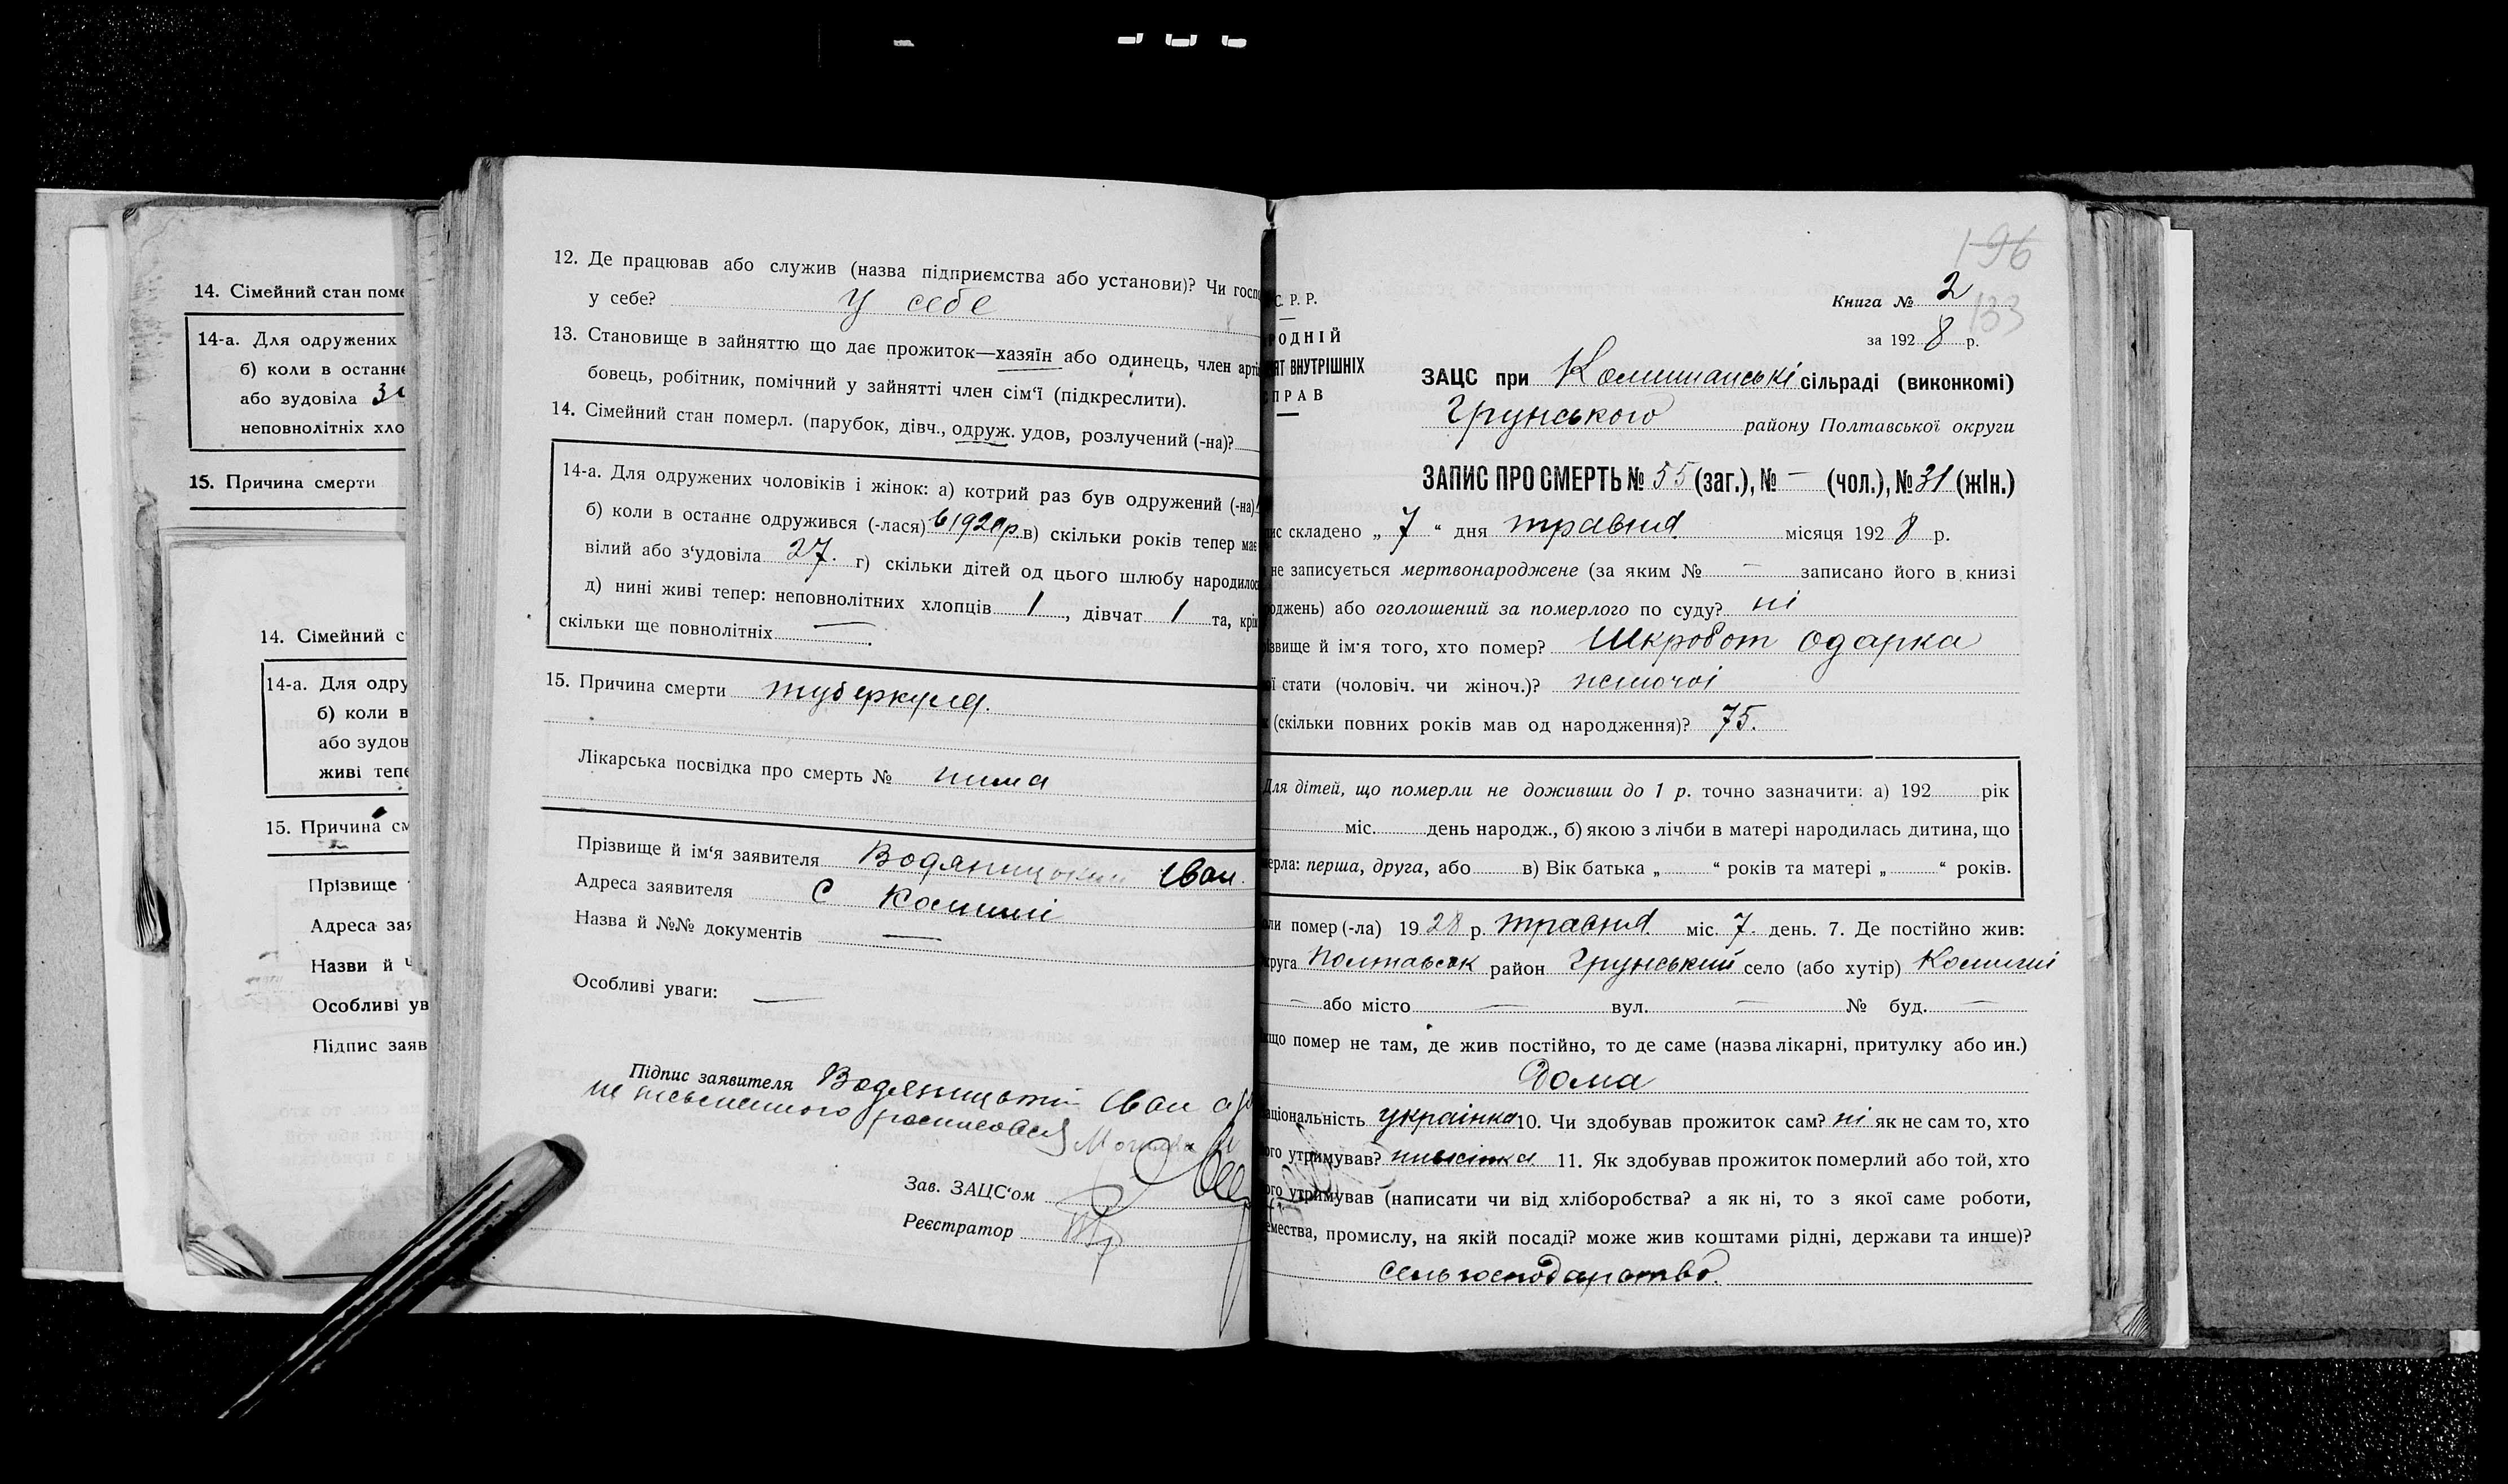 14. Сімейний стан поме
14-а. Для одружених
б) коли в останнє
або зудовіла
неповнолітніх хло
15. Причина смерти
14. Сімейний с
14-а. Для одру
б) коли в
або зудов
живі тепе
15. Причина см
Прізвище
Адреса зая
Назви й
Особливі ув
Підпис заяв
12. Де працював або служив (назва підприємства або установи)? Чи госпо
у себе? У себе
13. Становище в зайняттю що дає прожиток—хазяїн або одинець, член арті
бовець, робітник, помічний у зайнятті член сім'ї (підкреслити).
14. Сімейний стан померл. (парубок, дівч., одруж. удов, розлучений (-на)?
14-а. Для одружених чоловіків і жінок: а) котрий раз був одружений (-на)
б) коли в останнє одружився (-лася) в) скільки років тепер має
вілий або з'удовіла 27. г) скільки дітей од цього шлюбу народилос
д) нині живі тепер: неповнолітких хлопців 1, дівчат 1 та, крім
скільки ще повнолітніх — .
15. Причина смерти туберкульоз.
Лікарська посвідка про смерть № нима
Прізвище й ім'я заявителя Водяницький Іван.
Адреса заявителя с Комиші
Назва й №№ документів —
Особливі уваги: —
Підпис заявителя Водяницький Іван а
не письменного росписався
Зав. ЗАЦС'ом
Реєстратор
196
Книга № 2
133
за 1928 р.
С. Р. Р.
РОДНІЙ
ЯТ ВНУТРІШНІХ
ПРАВ
ЗАЦС при Комишанські сільраді (виконкомі)
Грунського району Полтавської округи
ЗАПИС ПРО СМЕРТЬ № 55 (заг.), № — (чол.), № 31 (жін.)
ис складено „ 7 “ дня травня місяця 1928 р.
не записується мертвонароджене (за яким № — записано його в книзі
роджень) або оголошений за померлого по суду? ні
ізвище й ім'я того, хто помер? Шкробот Одарка
ої стати (чоловіч. чи жіноч.)? жіночої
к (скільки повних років мав од народження)? 75.
Для дітей, що померли не доживши до 1 р. точно зазначити: а) 192 рік
міс. день народж., б) якою з лічби в матері народилась дитина, що
мерла: перша, друга, або в) Вік батька „ “ років та матері „ “ років.
оли помер (-ла) 1928 р. травня міс. 7. день. 7. Де постійно жив:
круга Полтавськ район Грунський село (або хутір) Комиші
— або місто — вул. — № буд. —
кщо помер не там, де жив постійно, то де саме (назва лікарні, притулку або ин.)
Дома
аціональність українка 10. Чи здобував прожиток сам? ні як не сам то, хто
ого утримував? невістка 11. Як здобував прожиток померлий або той, хто
ого утримував (написати чи від хліборобства? а як ні, то з якої саме роботи,
емества, промислу, на якій посаді? може жив коштами рідні, держави та инше)?
сельгосподарство.